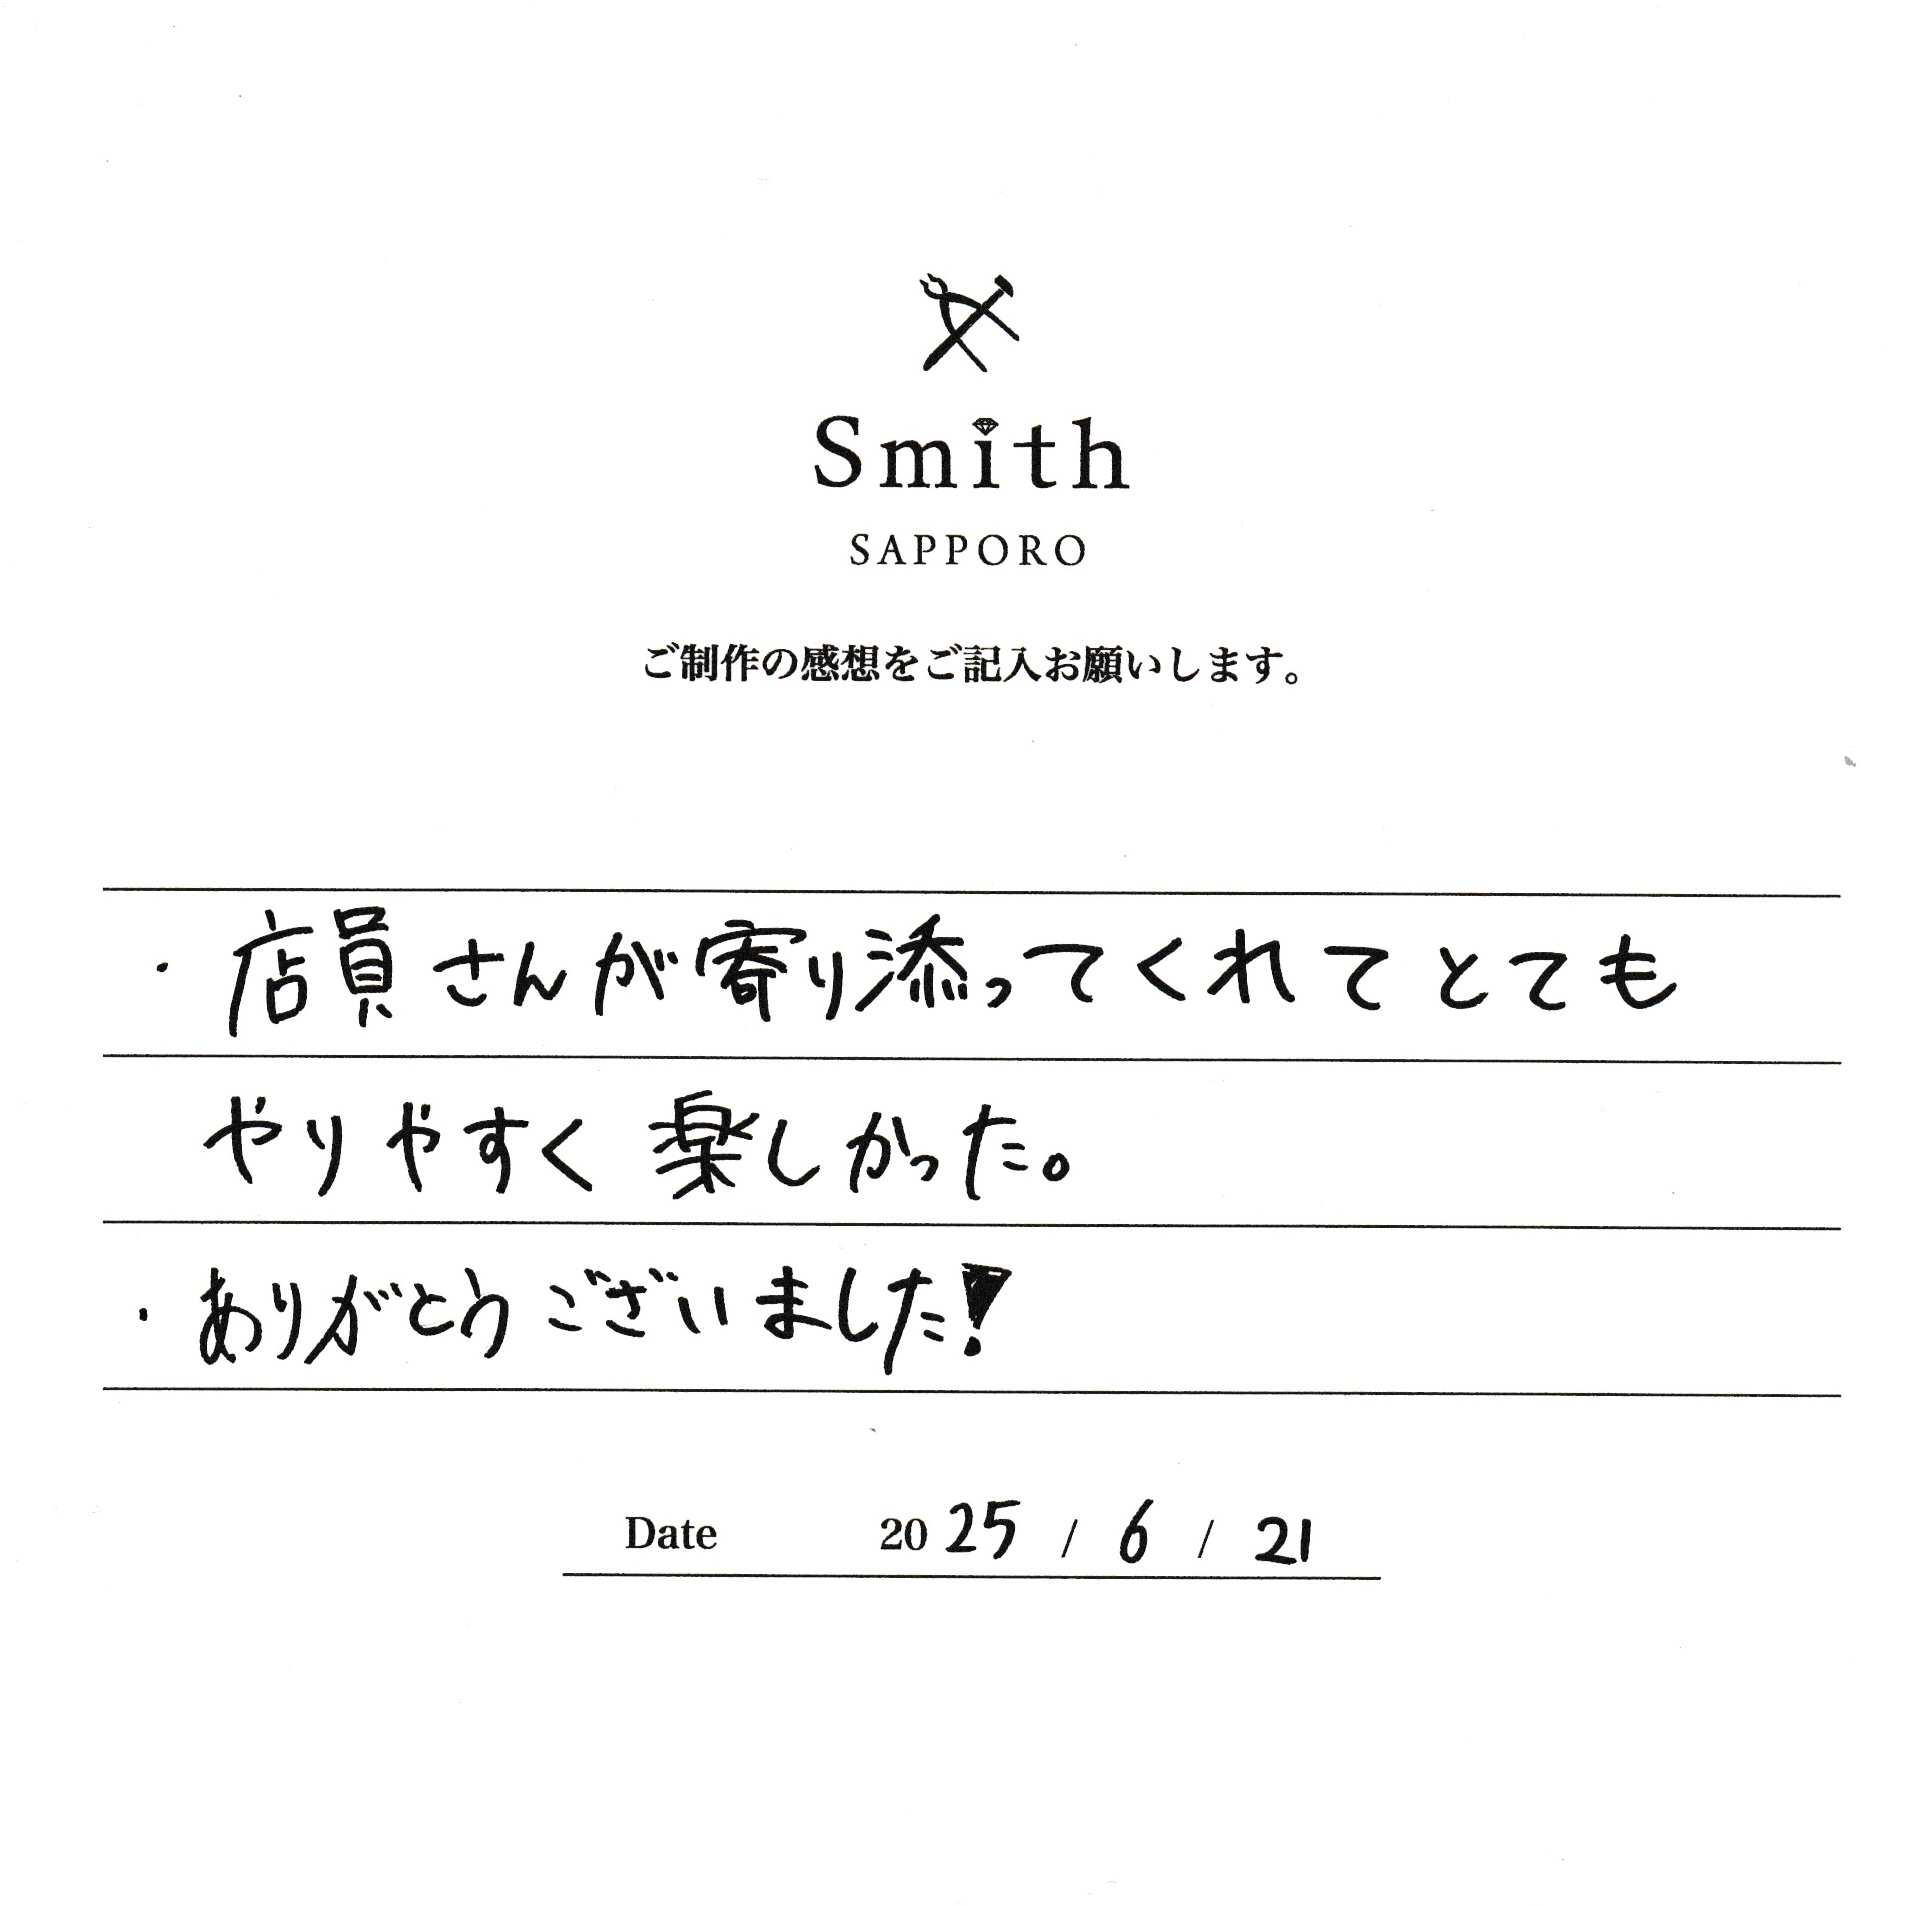 Smith
SAPPORO
ご制作の感想をご記入お願いします。
・店員さんが寄り添ってくれてとても
やりやすく楽しかった。
・ありがとうございました!
Date 2025 / 6 / 21